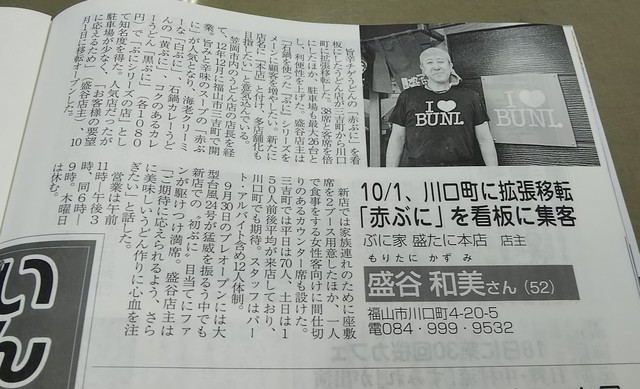 I ♥
BUNI.
I ♥
BUNI.
10/1、川口町に拡張移転
「赤ぶに」を看板に集客
ぶに家 盛たに本店 店主
もりたに かずみ
盛谷 和美さん(52)
福山市川口町4-20-5
電084・999・9532
板にしたうどん店が三吉町から川口
にしたほか、駐車場も最大26台と
し、利便性を上げた。盛谷店主は
「石鍋を使った『ぶに』シリーズを
メーンに顧客を増やしたい。新たに
店名に『本店』と付け、多店舗化も
目指したい」と意気込んでいる。
笠岡市内のうどん店の店長を経
て、12年12月に福山市三吉町で開
業。旨みと辛味のスープの「赤ぶ
に」が人気となり、海老クリーミ
ーな「白ぶに」、石鍋カレーうど
んの「黄ぶに」、コクのあるカレ
ーうどん「黒ぶに」(各1080
円)で〝ぶにシリーズの店〟とし
て知名度を得た。人気店だったが
駐車場が少なく、「お客様の要望
に応えるため」(盛谷店主)、10
月1日に移転オープンした。
新店では家族連れのために座敷
席を2ブース用意したほか、一人
で食事をする女性客向けに間仕切
りのあるカウンター席も設けた。
三吉町では平日は70人、土日は1
50人前後平均が来店しており、
川口町でも期待。スタッフはパー
ト・アルバイト含め12人体制。
9月30日のプレオープンには大
型台風24号が猛威を振るう中でも
新店での〝初ぶに〟目当てにファ
ンが駆けつけ満席。盛谷店主は
「ご期待に応えられるよう、さら
に美味しいうどん作りに心血を注
ぎたい」と話した。
営業は午前
11時―午後3
時、同6時―
9時。木曜日
は休む。
いん